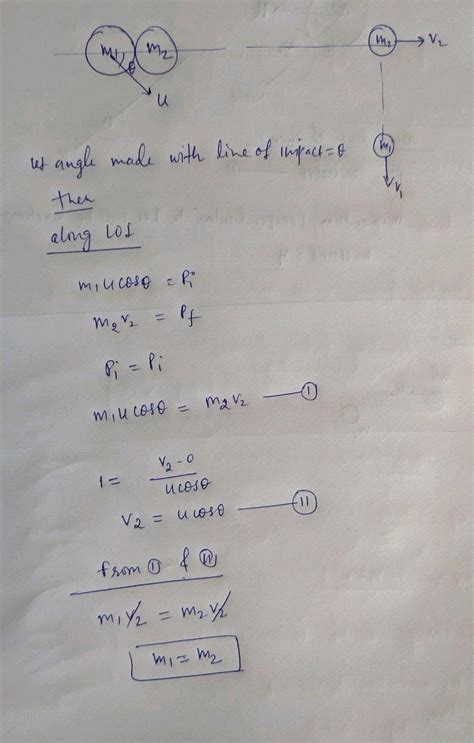 m₁ m₂ m₂ → v₂
θ
u
m₁
v₁
let angle made with line of impact = θ
then
along LOI
m₁ u cosθ = Pᵢ
m₂ v₂ = Pf
Pᵢ = Pᵢ
m₁ u cosθ = m₂ v₂ — Ⓘ
1 = (v₂ - 0) / (u cosθ)
v₂ = u cosθ — Ⓘ Ⓘ
from Ⓘ & Ⓘ Ⓘ
m₁ v₂ = m₂ v₂
m₁ = m₂